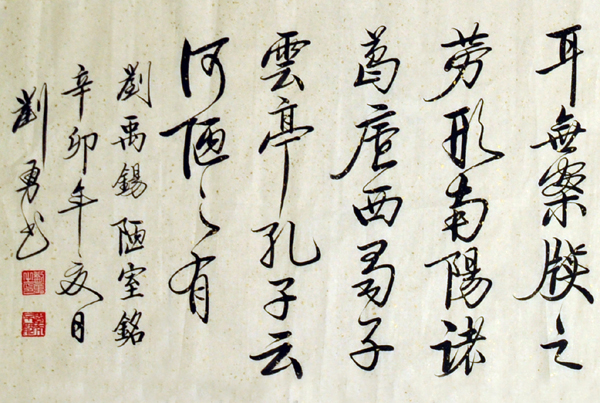 耳無案牘之
勞形南陽諸
葛廬西蜀子
雲亭孔子云
何陋之有
劉禹錫陋室銘
辛卯年夏日
劉勇书